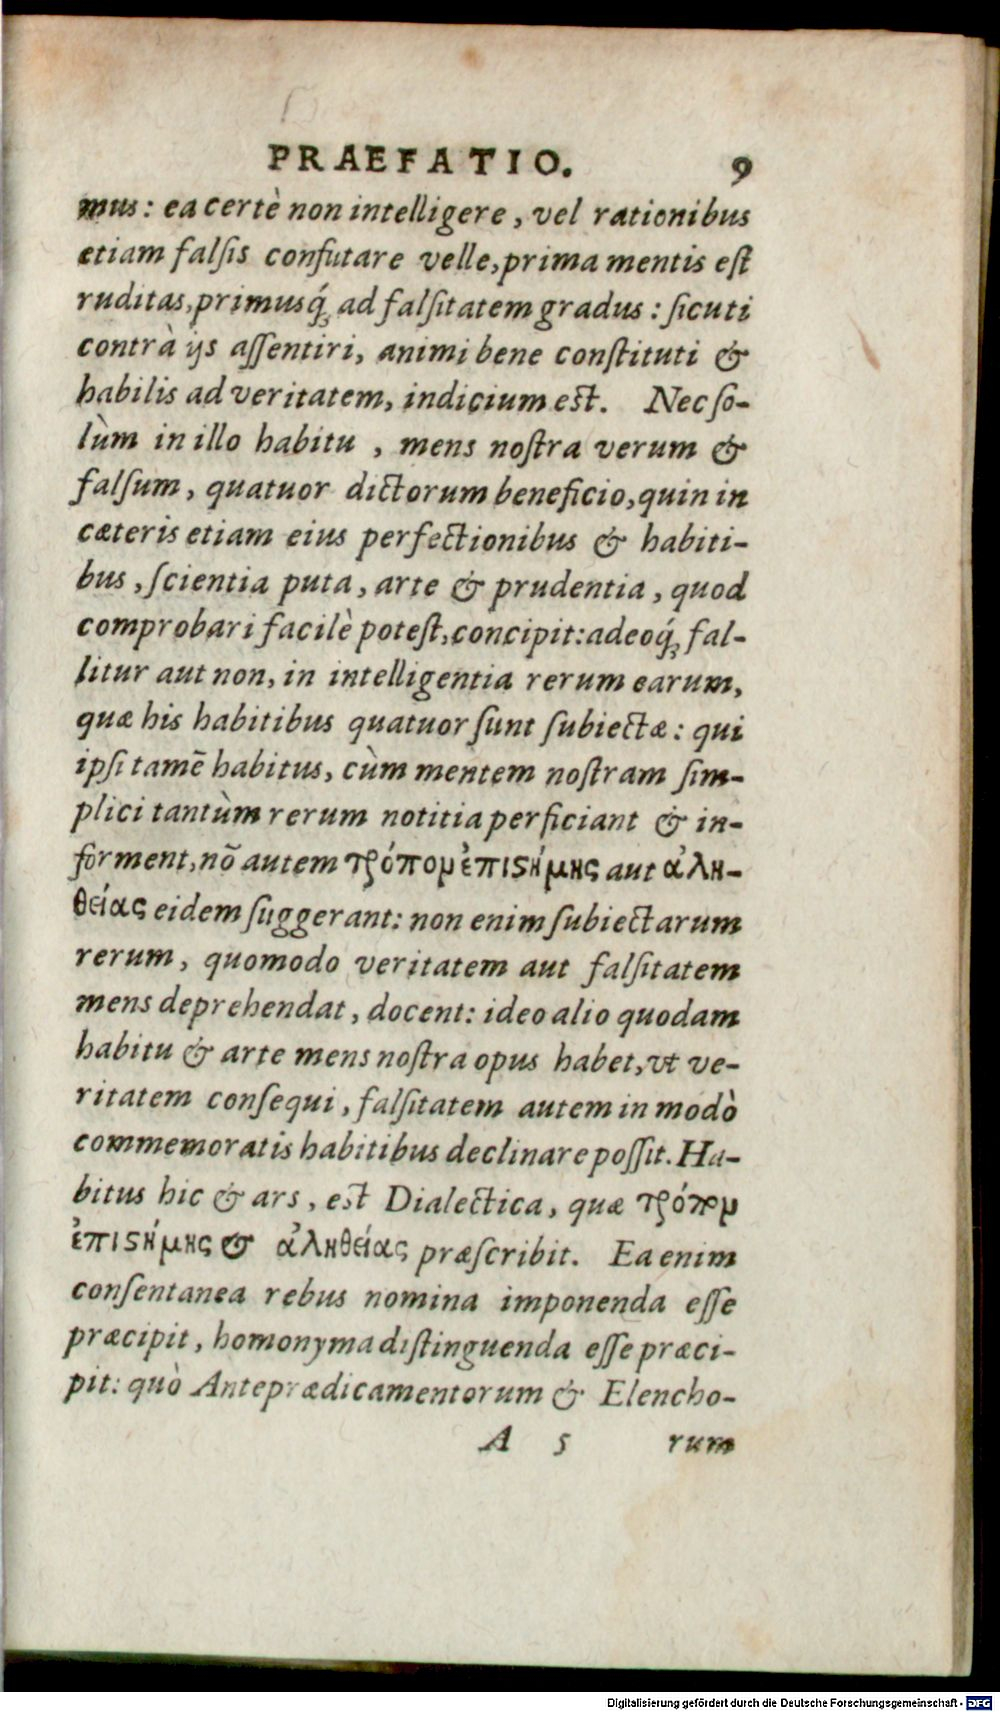 PRAEFATIO. 9
mus: ea certè non intelligere, vel rationibus
etiam falſis confutare velle, prima mentis eſt
ruditas, primusq́; ad falſitatem gradus: ſicuti
contrà ijs aſſentiri, animi bene conſtituti &
habilis ad veritatem, indicium est. Nec ſo-
lùm in illo habitu, mens noſtra verum &
falſum, quatuor dictorum beneficio, quin in
cæteris etiam eius perfectionibus & habiti-
bus, ſcientia puta, arte & prudentia, quod
comprobari facilè poteſt, concipit: adeoq́; fal-
litur aut non, in intelligentia rerum earum,
quæ his habitibus quatuor ſunt ſubiectæ: qui
ipſi tamē habitus, cùm mentem noſtram ſim-
plici tantùm rerum notitia perficiant & in-
forment, nō autem τρόπομ ἐπιϛήμης aut ἀλη-
θείας eidem ſuggerant: non enim ſubiectarum
rerum, quomodo veritatem aut falſitatem
mens deprehendat, docent: ideo alio quodam
habitu & arte mens noſtra opus habet, vt ve-
ritatem conſequi, falſitatem autem in modò
commemoratis habitibus declinare poſſit. Ha-
bitus hic & ars, est Dialectica, quæ τρόπομ
ἐπιϛήμης & ἀληθείας præſcribit. Ea enim
conſentanea rebus nomina imponenda eſſe
præcipit, homonyma diſtinguenda eſſe præci-
pit: quò Anteprædicamentorum & Elencho-
A 5 rum
Digitalisierung gefördert durch die Deutsche Forschungsgemeinschaft - DFG